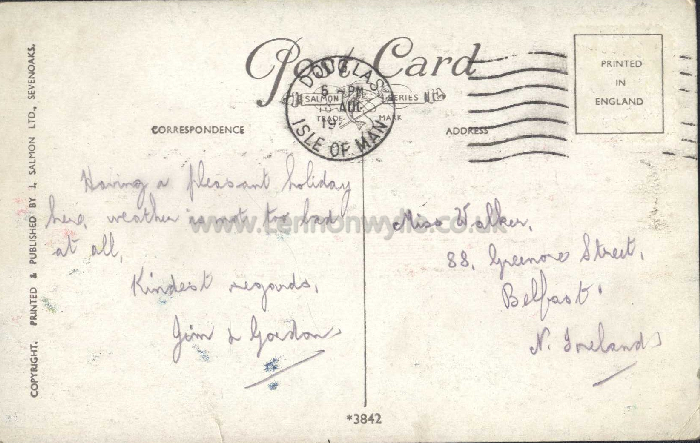 Post Card
DOUGLAS
6 PM
AUG
19
ISLE OF MAN
SALMON SERIES
TRADE MARK
PRINTED
IN
ENGLAND
CORRESPONDENCE
ADDRESS
Having a pleasant holiday
here, weather is not too bad
at all,
Kindest regards,
Jim & Gordon
Miss Walker,
88, Greenore Street,
Belfast.
N. Ireland
COPYRIGHT. PRINTED & PUBLISHED BY J. SALMON LTD., SEVENOAKS.
*3842